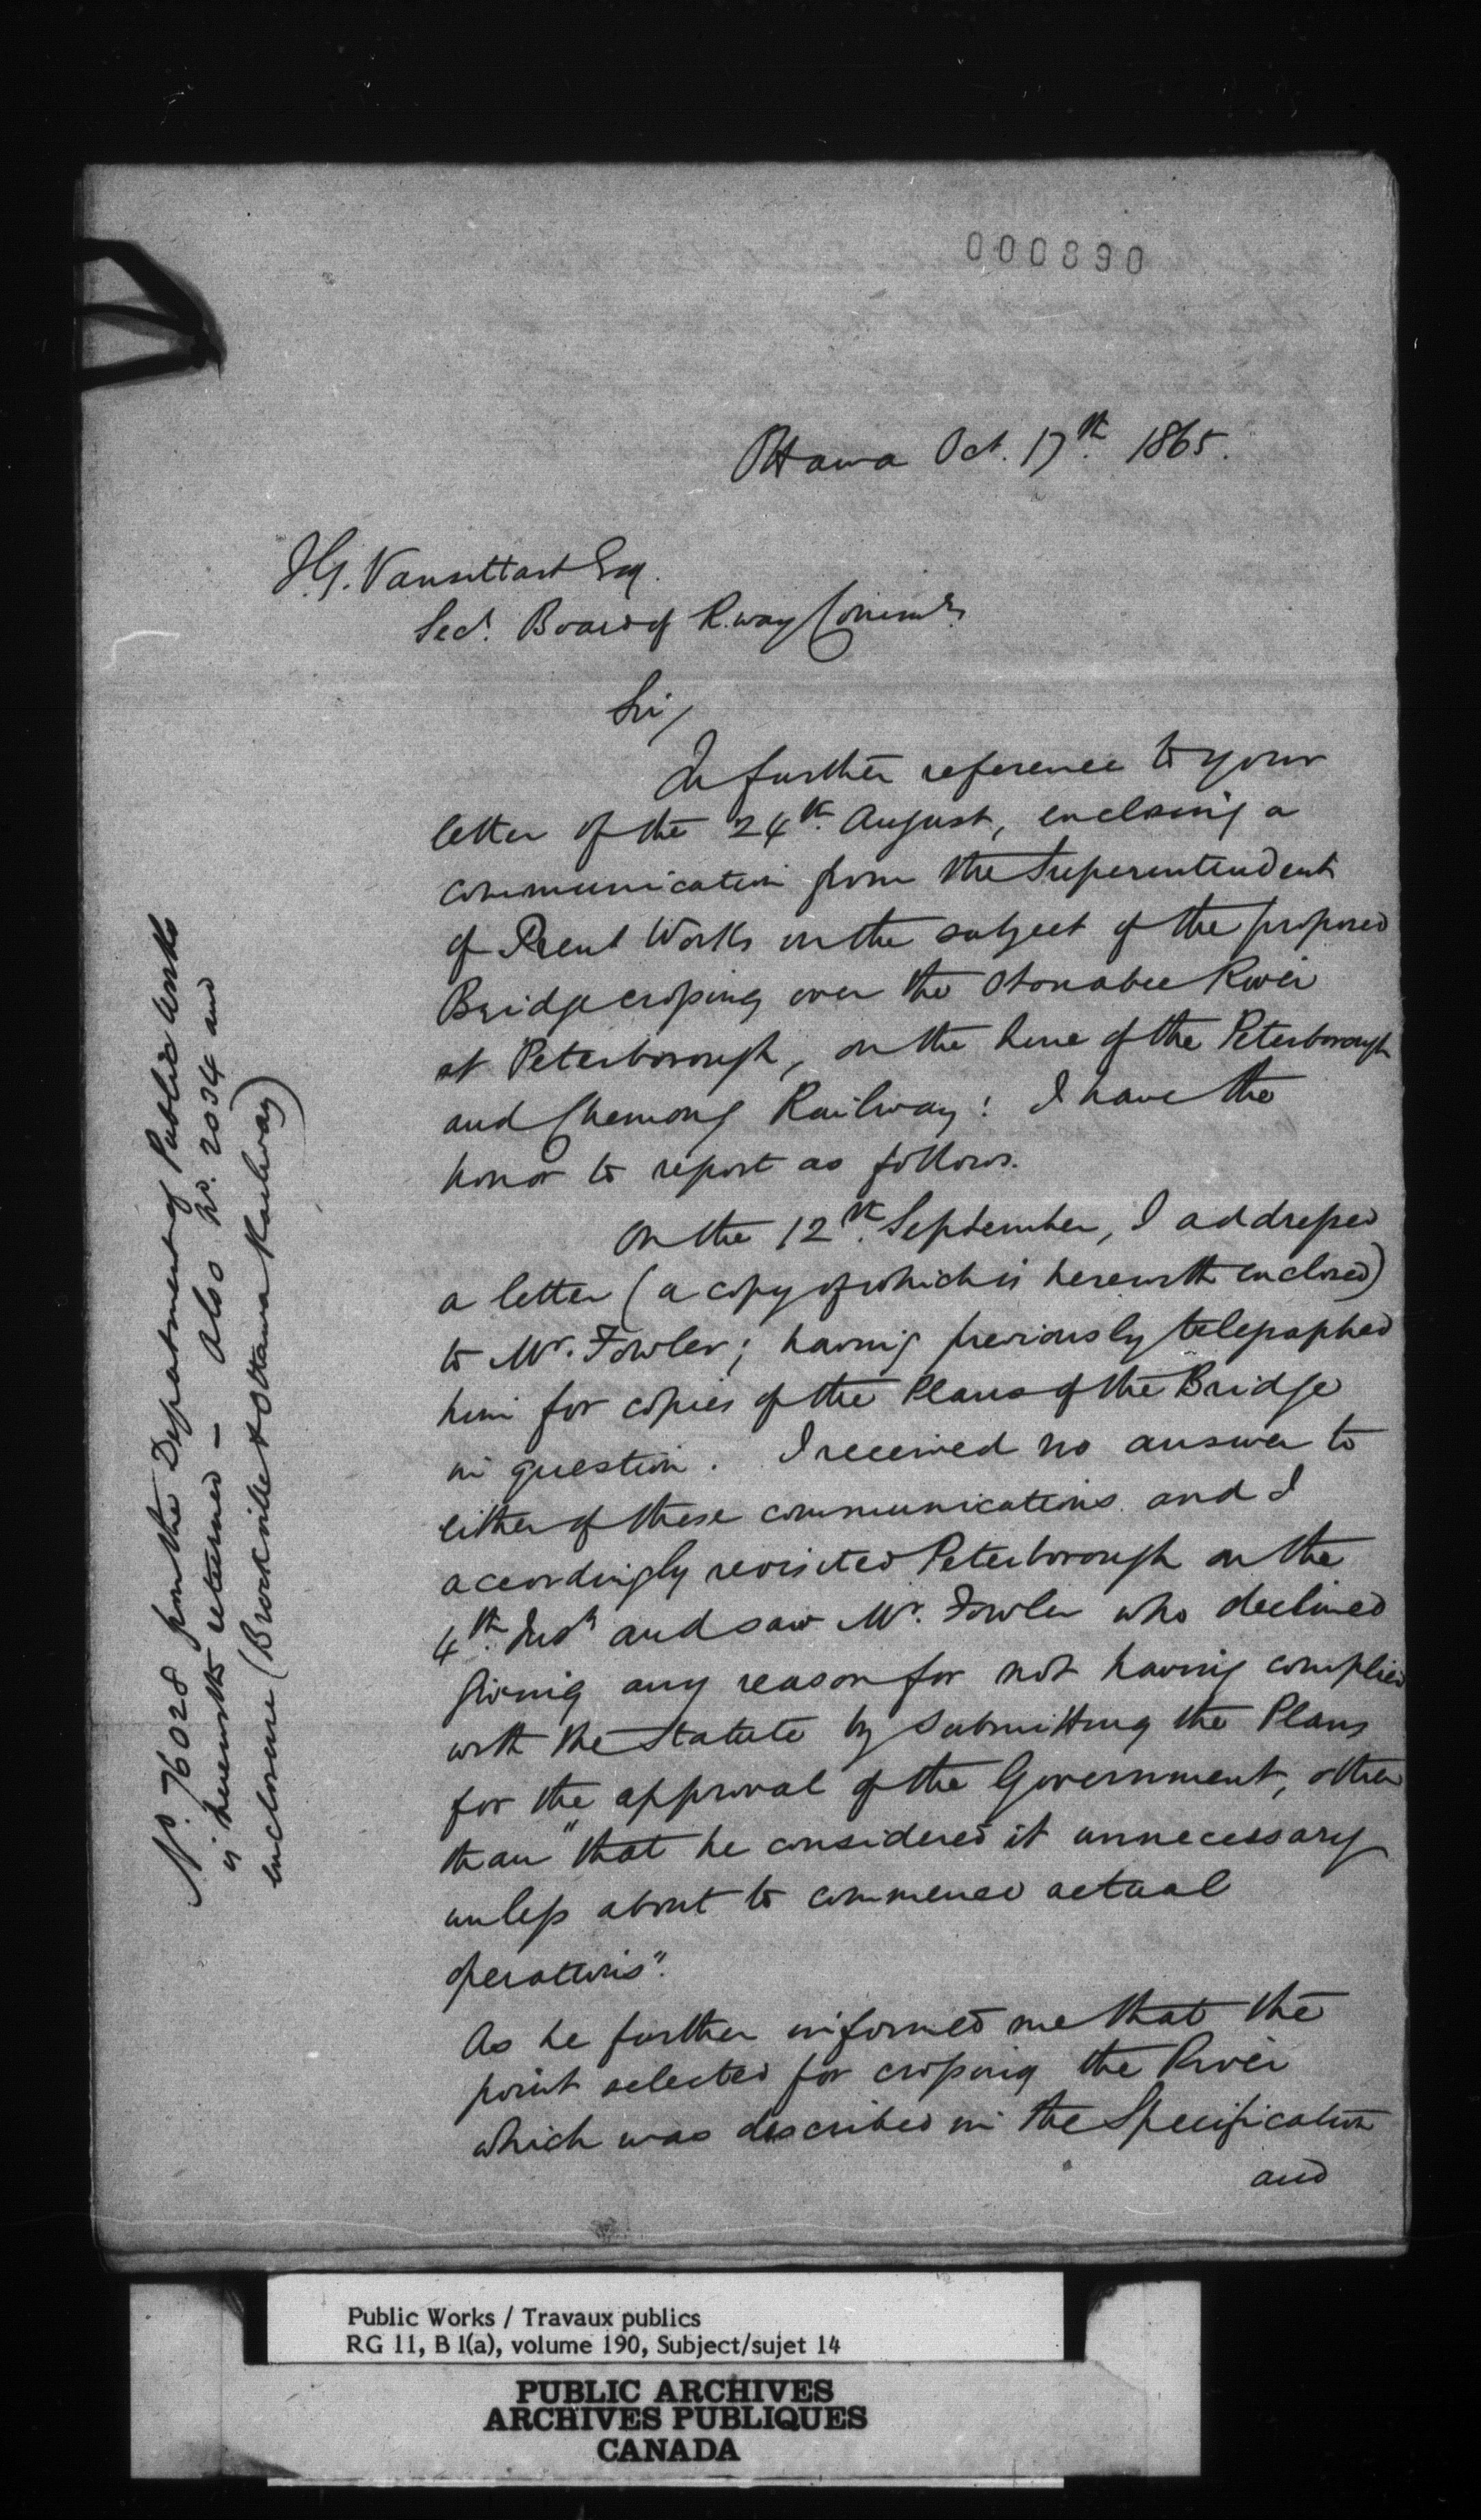 000890
Ottawa Oct. 17th. 1865.
J.G. Vansittart Esq.
Secy. Board of R.way Commrs.
Sir,
In further reference to your
letter of the 24th. August, enclosing a
communication from the Superintendent
of Trent Works on the subject of the proposed
Bridge crossing over the Otonabee River
at Peterborough, on the line of the Peterborough
and Chemong Railway: I have the
honor to report as follows.
On the 12th. September, I addressed
a letter (a copy of which is herewith enclosed)
to Mr. Fowler; having previously telegraphed
him for copies of the Plans of the Bridge
in question. I received no answer to
either of these communications and I
accordingly revisited Peterborough on the
4th. Inst and saw Mr. Fowler who declined
giving any reason for not having complied
with the Statute by submitting the Plans
for the approval of the Government, other
than "that he considered it unnecessary
unless about to commence actual
operations".
As he further informed me that the
point selected for crossing the River
which was described in the Specification
and
No. 76028 from the Department of Public Works
is herewith returned - Also No. 2034 and
enclosure (Brockville & Ottawa Railway)
Public Works / Travaux publics
RG 11, B 1(a), volume 190, Subject/sujet 14
PUBLIC ARCHIVES
ARCHIVES PUBLIQUES
CANADA